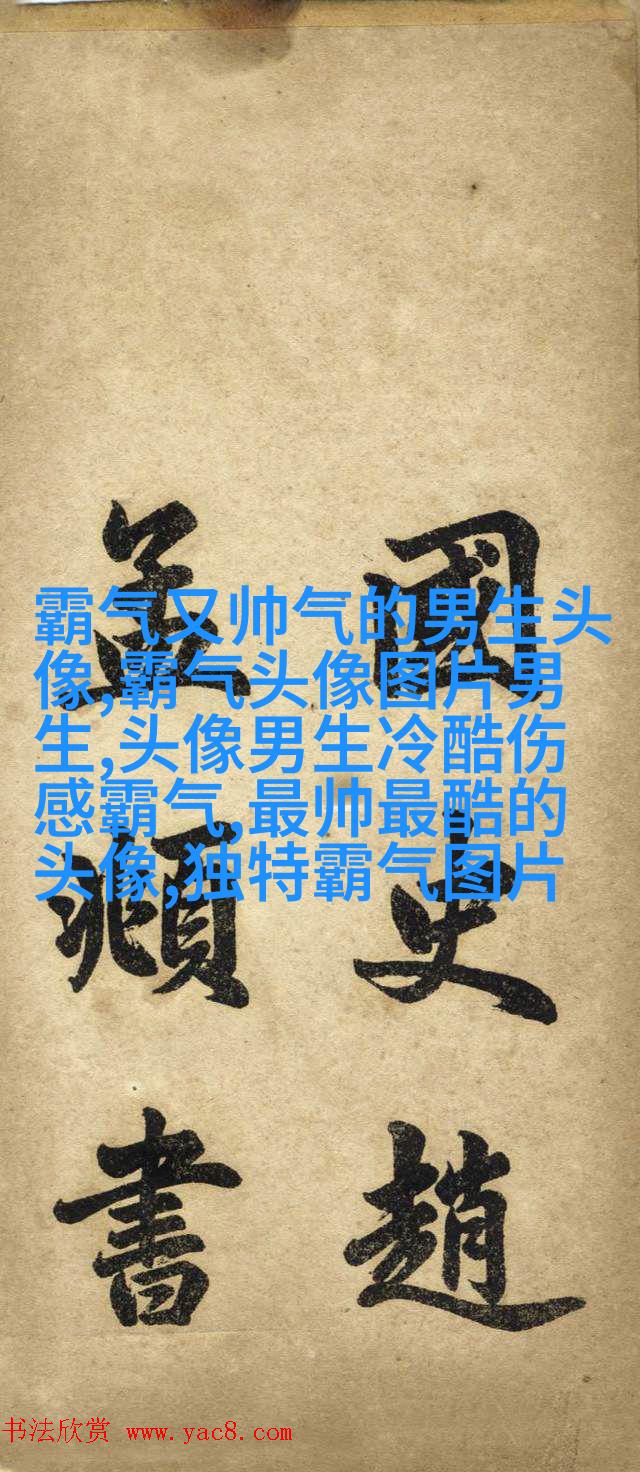 國史趙
孟頫書
霸气又帅气的男生头
像,霸气头像图片男
生,头像男生冷酷伤
感霸气,最帅最酷的
头像,独特霸气图片
书法欣赏 www.yac8.com